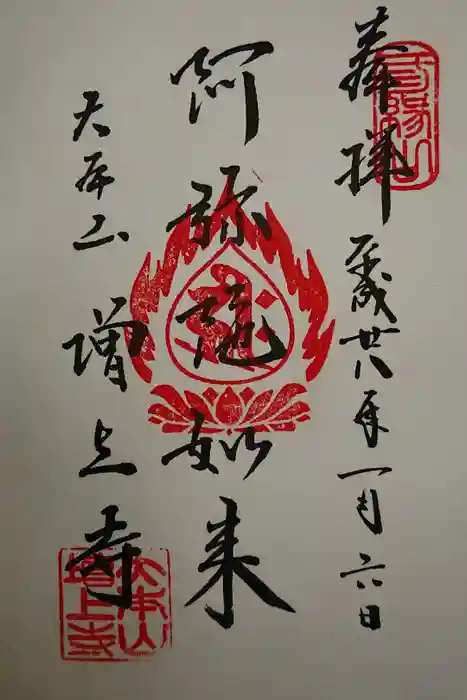 奉拝
平成廿八年一月六日
阿弥陀如来
大本山
増上寺
大本山
増上寺